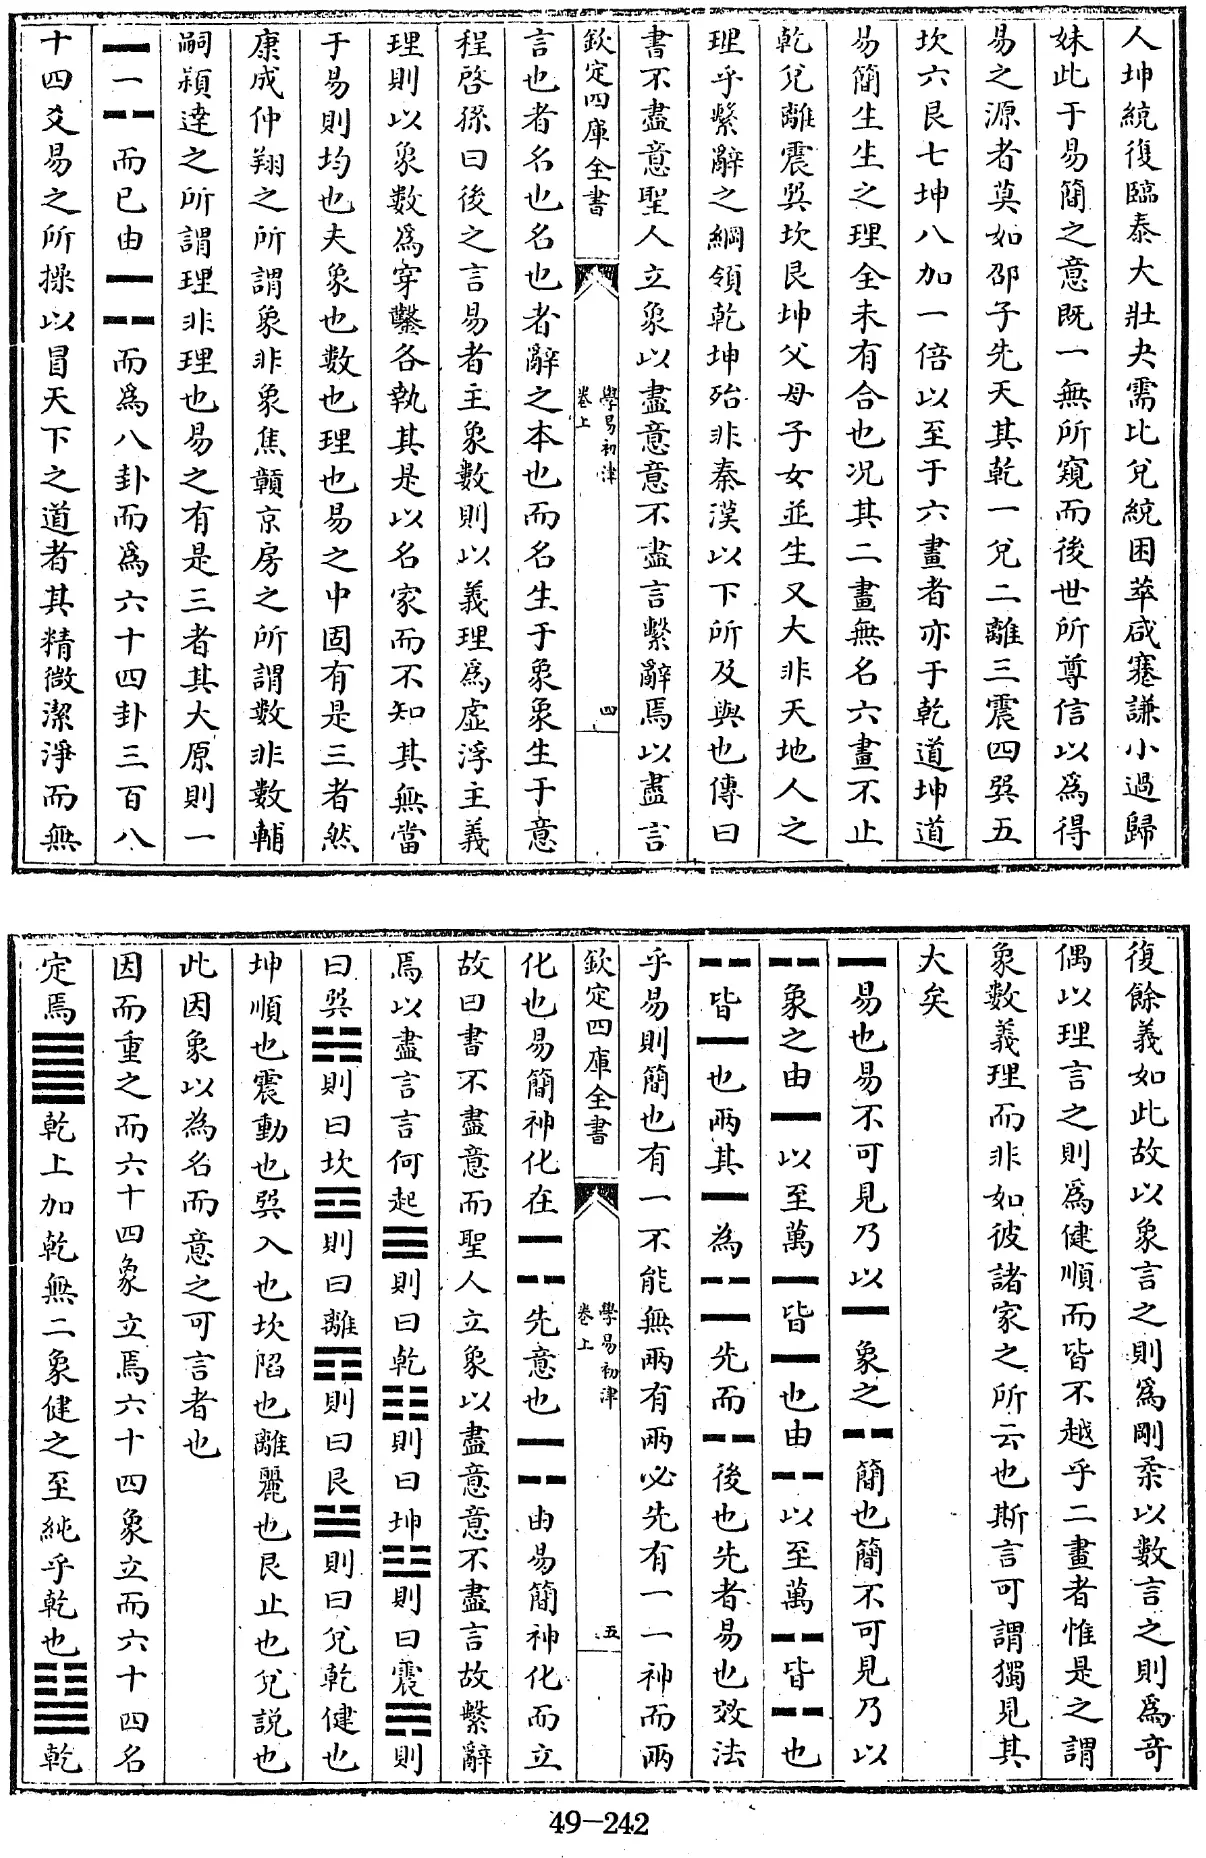 人坤統復臨泰大壯夬需比兌統困萃咸蹇謙小過歸
妹此于易簡之意既一無所窺而後世所尊信以爲得
易之源者莫如邵子先天其乾一兌二離三震四巽五
坎六艮七坤八加一倍以至于六畫者亦于乾道坤道
易簡生生之理全未有合也况其二畫無名六畫不止
乾兌離震巽坎艮坤父母子女並生又大非天地人之
理乎繫辭之綱領乾坤殆非秦漢以下所及與也傳曰
書不盡意聖人立象以盡意意不盡言繫辭焉以盡言
欽定四庫全書 學易初津 卷上 四
言也者名也名也者辭之本也而名生于象象生于意
程啓孫曰後之言易者主象數則以義理爲虛浮主義
理則以象數爲穿鑿各執其是以名家而不知其無當
于易則均也夫象也數也理也易之中固有是三者然
康成仲翔之所謂象非象焦贛京房之所謂數非數輔
嗣穎達之所謂理非理也易之有是三者其大原則一
⚊一⚋而已由⚊⚋而爲八卦而爲六十四卦三百八
十四爻易之所操以冒天下之道者其精微潔淨而無
復餘義如此故以象言之則爲剛柔以數言之則爲奇
偶以理言之則爲健順而皆不越乎二畫者惟是之謂
象數義理而非如彼諸家之所云也斯言可謂獨見其
大矣
⚊易也易不可見乃以⚊象之⚋簡也簡不可見乃以
⚋象之由⚊以至萬⚊皆⚊也由⚋以至萬⚋皆⚋也
⚋皆⚊也兩其⚊為⚋⚊先而⚋後也先者易也效法
乎易則簡也有一不能無兩有兩必先有一一神而兩
欽定四庫全書 學易初津 卷上 五
化也易簡神化在⚊⚋先意也⚊⚋由易簡神化而立
故曰書不盡意而聖人立象以盡意意不盡言故繫辭
焉以盡言言何起☰則曰乾☷則曰坤☳則曰震☴則
曰巽☵則曰坎☲則曰離☶則曰艮☱則曰兌乾健也
坤順也震動也巽入也坎陷也離麗也艮止也兌說也
此因象以為名而意之可言者也
因而重之而六十四象立焉六十四象立而六十四名
定焉䷀乾上加乾無二象健之至純乎乾也䷊乾
49-242